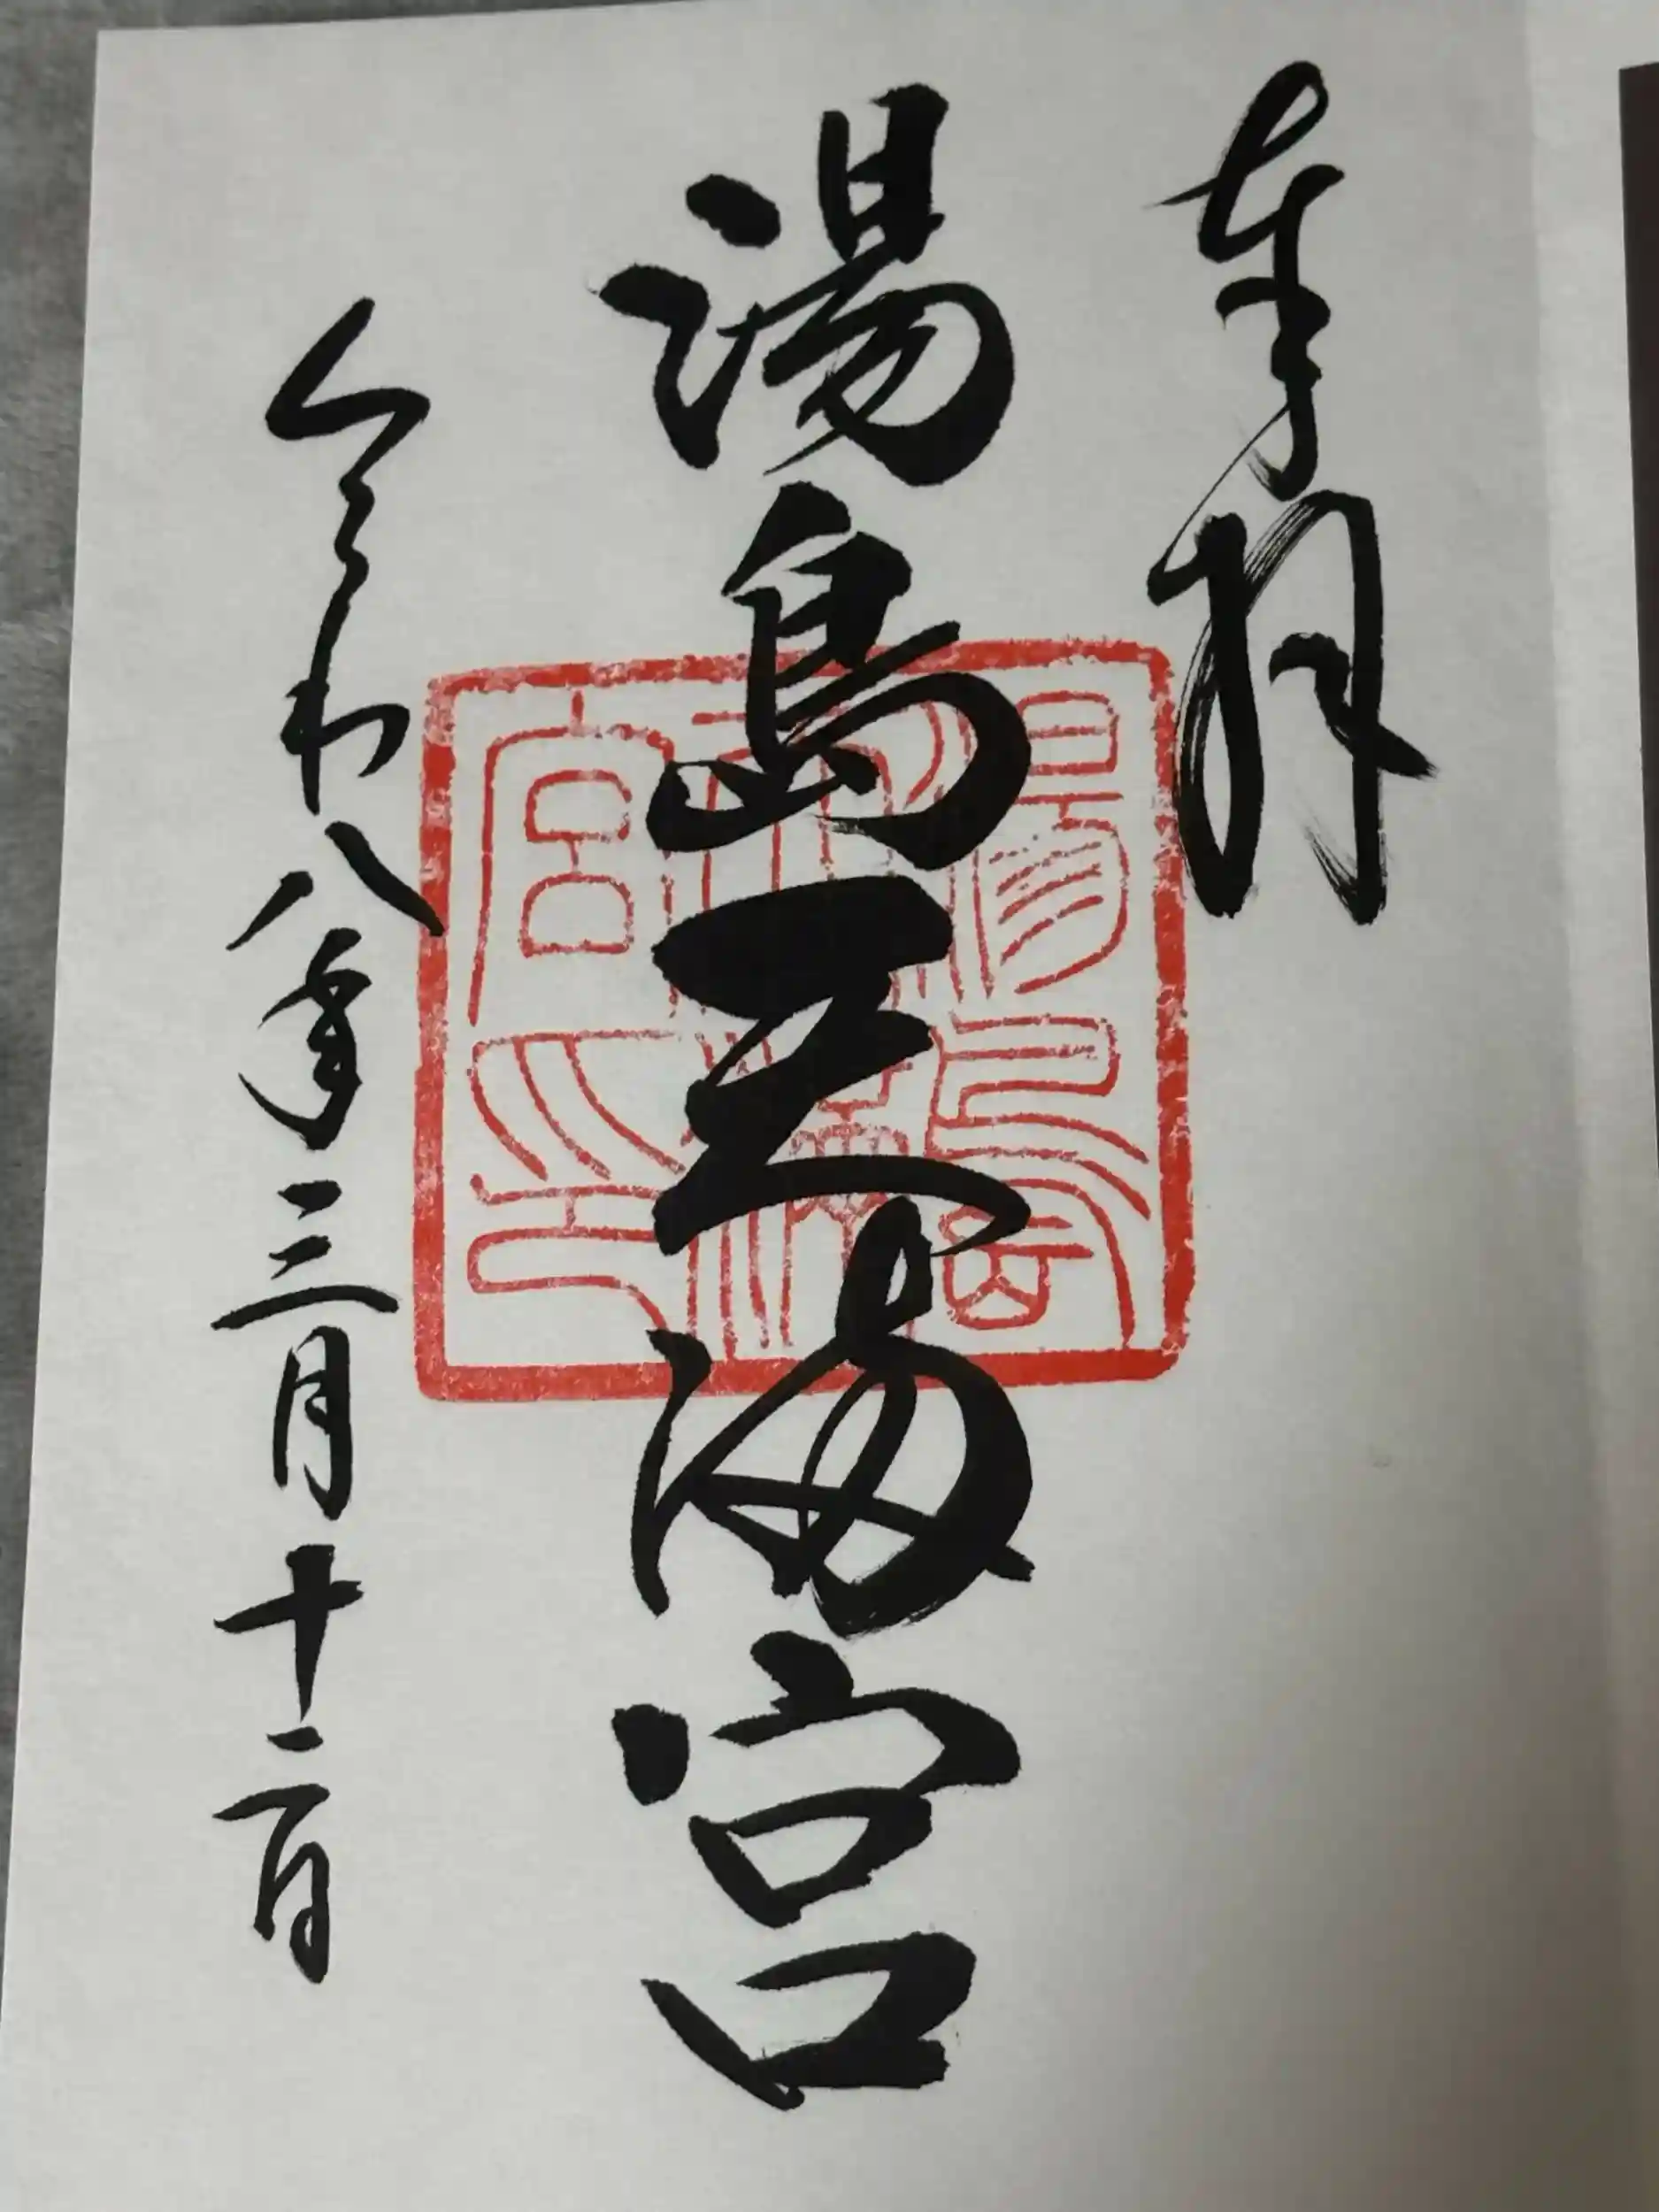 奉拝
湯島天満宮
令和八年三月十二日
湯島
天滿
宮印